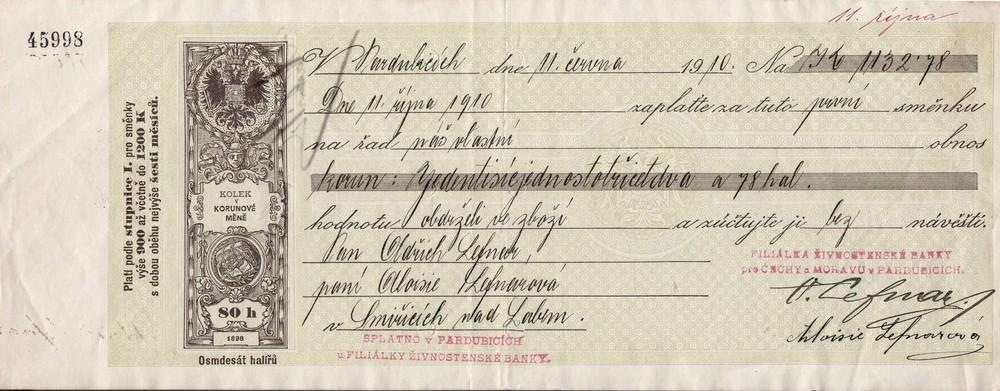 11. října
45998
V Pardubicích dne 11. června 1910. Na K 1132·78
Dne 11. října 1910 zaplaťte za tuto první směnku
na řad náš vlastní obnos
korun: Jedentisícjednostotřicetdva a 78 hal.
hodnotu obdrželi ve zboží a zúčtujte ji bez návěští.
Pan Oldřich
paní Aloisie
v Smiřicích nad Labem.
FILIÁLKA ŽIVNOSTENSKÉ BANKY
pro ČECHY a MORAVU v PARDUBICÍCH.
Aloisie
SPLATNO v PARDUBICÍCH
u FILIÁLKY ŽIVNOSTENSKÉ BANKY.
Platí podle stupnice I. pro směnky
výše 900 až včetně do 1200 K
s dobou oběhu nejvýše šesti měsíců.
KOLEK
V
KORUNOVÉ
MĚNĚ
80 h
1898
Osmdesát haléřů